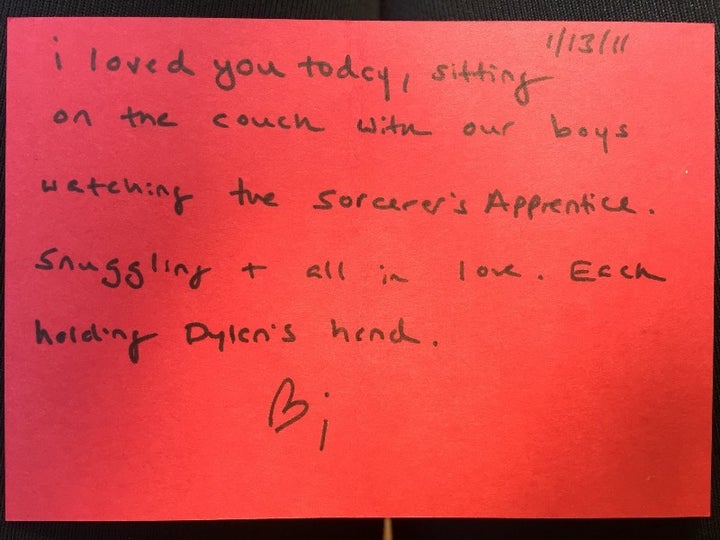 1/13/11
i loved you today, sitting
on the couch with our boys
watching the Sorcerer's Apprentice.
Snuggling + all in love. Each
holding Dylan's hand.